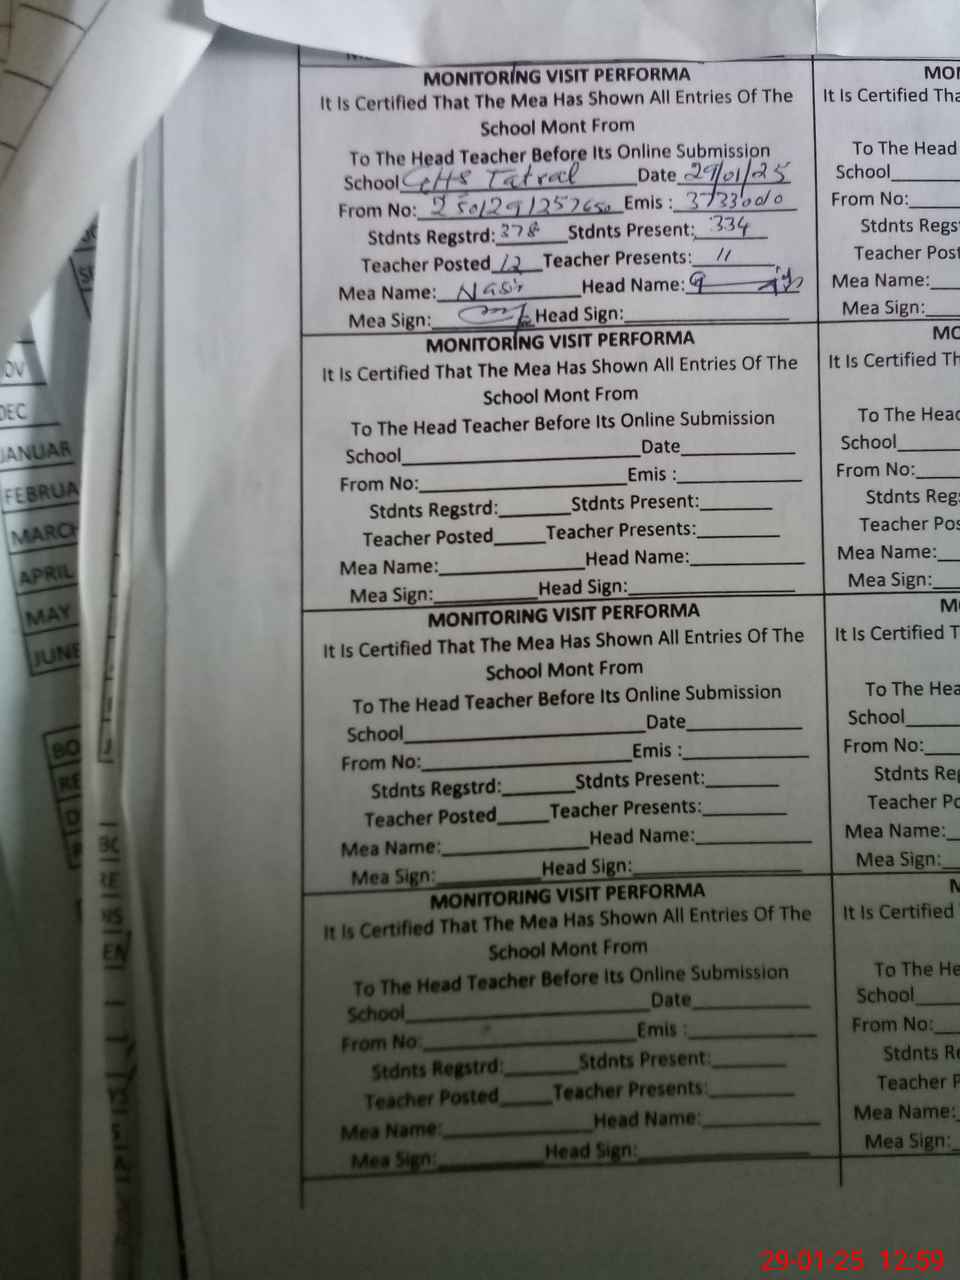 MONITORING VISIT PERFORMA
It Is Certified That The Mea Has Shown All Entries Of The
School Mont From
To The Head Teacher Before Its Online Submission
School GHS Tatral Date 29/01/25
From No: Emis : 37330010
Stdnts Regstrd: 378 Stdnts Present: 334
Teacher Posted 12 Teacher Presents: 11
Mea Name: Nasir Head Name:
Mea Sign: Head Sign:
MONITORING VISIT PERFORMA
It Is Certified That The Mea Has Shown All Entries Of The
School Mont From
To The Head Teacher Before Its Online Submission
School Date
From No: Emis :
Stdnts Regstrd: Stdnts Present:
Teacher Posted Teacher Presents:
Mea Name: Head Name:
Mea Sign: Head Sign:
MONITORING VISIT PERFORMA
It Is Certified That The Mea Has Shown All Entries Of The
School Mont From
To The Head Teacher Before Its Online Submission
School Date
From No: Emis :
Stdnts Regstrd: Stdnts Present:
Teacher Posted Teacher Presents:
Mea Name: Head Name:
Mea Sign: Head Sign:
MONITORING VISIT PERFORMA
It Is Certified That The Mea Has Shown All Entries Of The
School Mont From
To The Head Teacher Before Its Online Submission
School Date
From No: Emis :
Stdnts Regstrd: Stdnts Present:
Teacher Posted Teacher Presents:
Mea Name: Head Name:
Mea Sign: Head Sign:
It Is Certified
To The Head
School
From No:
Stdnts
Teacher
Mea Name:
Mea Sign:
It Is Certified
To The
School
From No:
Stdnts
Teacher
Mea Name:
Mea Sign:
It Is Certified
To The
School
From No:
Stdnts
Teacher
Mea Name:
Mea Sign:
It Is Certified
To The
School
From No:
Stdnts
Teacher
Mea Name:
Mea Sign:
DEC
MARCH
APRIL
MAY
JUNE
29-01-25 12:59